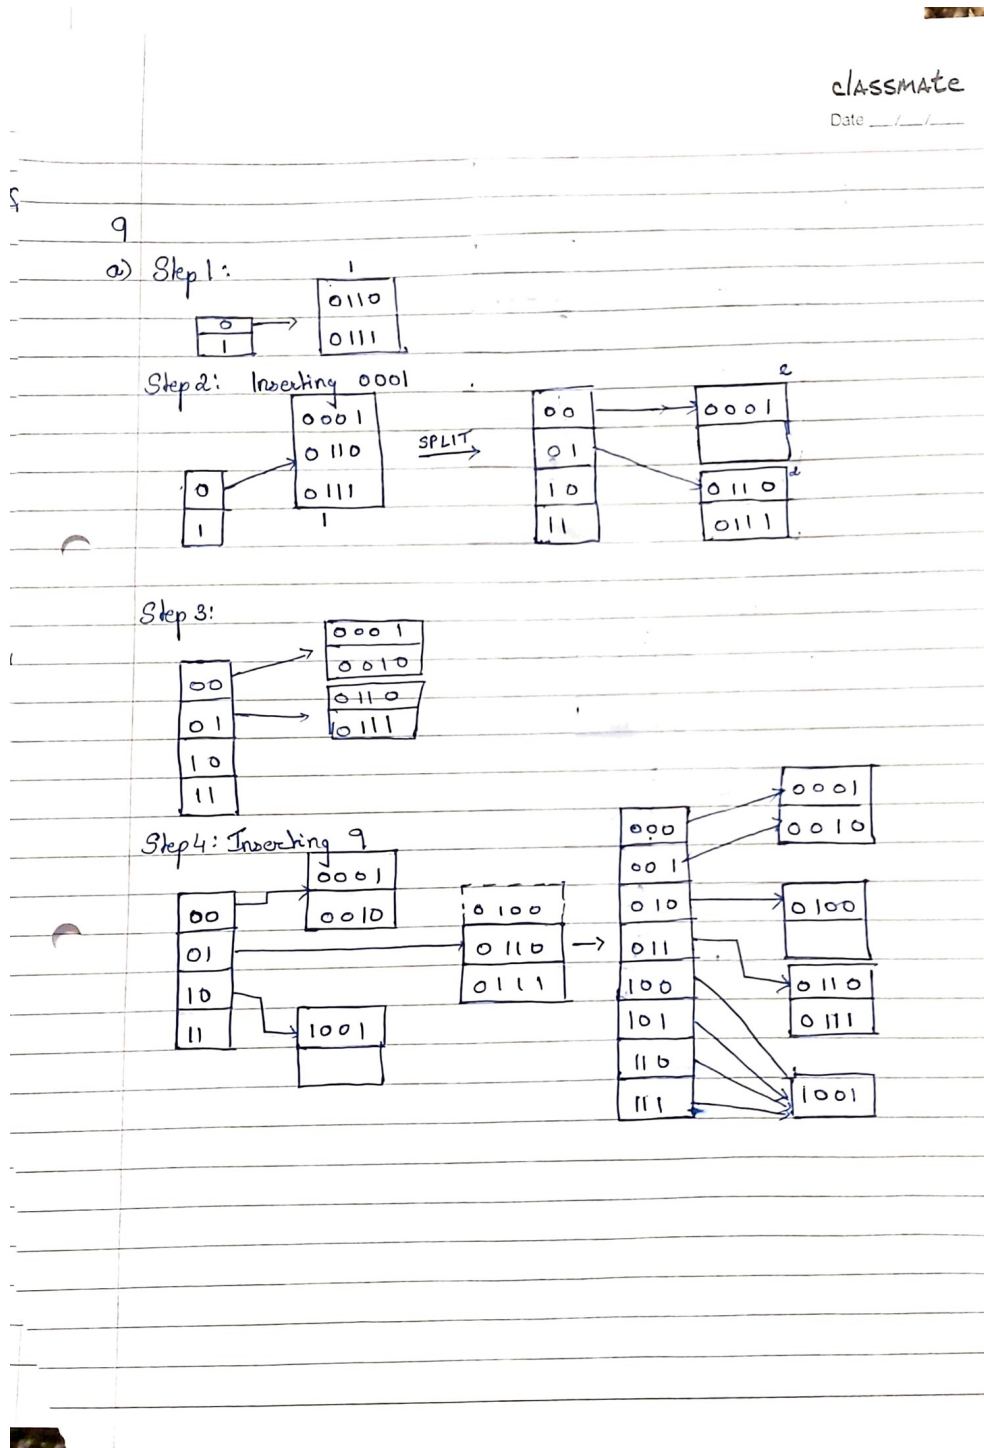 classmate
Date __/__/__
9
a) Step 1:
1
0
1
0110
0111
Step 2: Inserting 0001
0
1
0001
0110
0111
1
SPLIT
00
01
10
11
2
0001
2
0110
0111
Step 3:
00
01
10
11
0001
0010
0110
0111
Step 4: Inserting 9
00
01
10
11
0001
0010
0100
0110
0111
1001
000
001
010
011
100
101
110
111
0001
0010
0100
0110
0111
1001